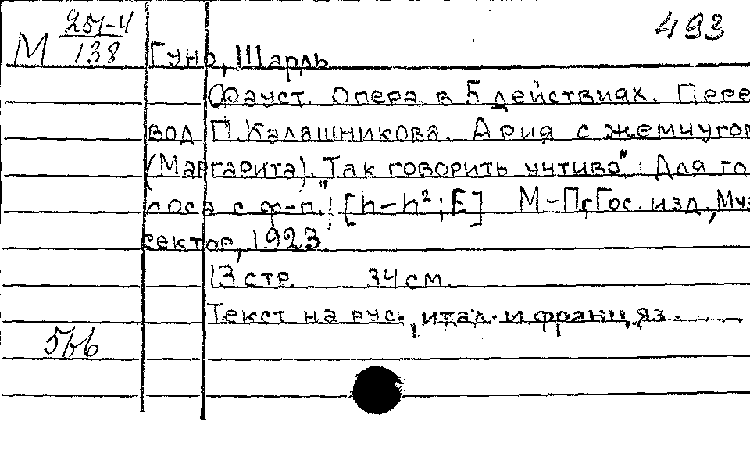 493
М 251-4/138
Гуно, Шарль
Фауст. Опера в 5 действиях. Пере
вод П. Калашникова. Ария с жемчугом
(Маргарита). "Так говорить учтиво". Для го
лоса с ф-п. [h-h²; E] М-Пг, Гос. изд., Муз
сектор, 1923
13 стр. 34 см.
Текст на рус., итал. и франц. яз.
566